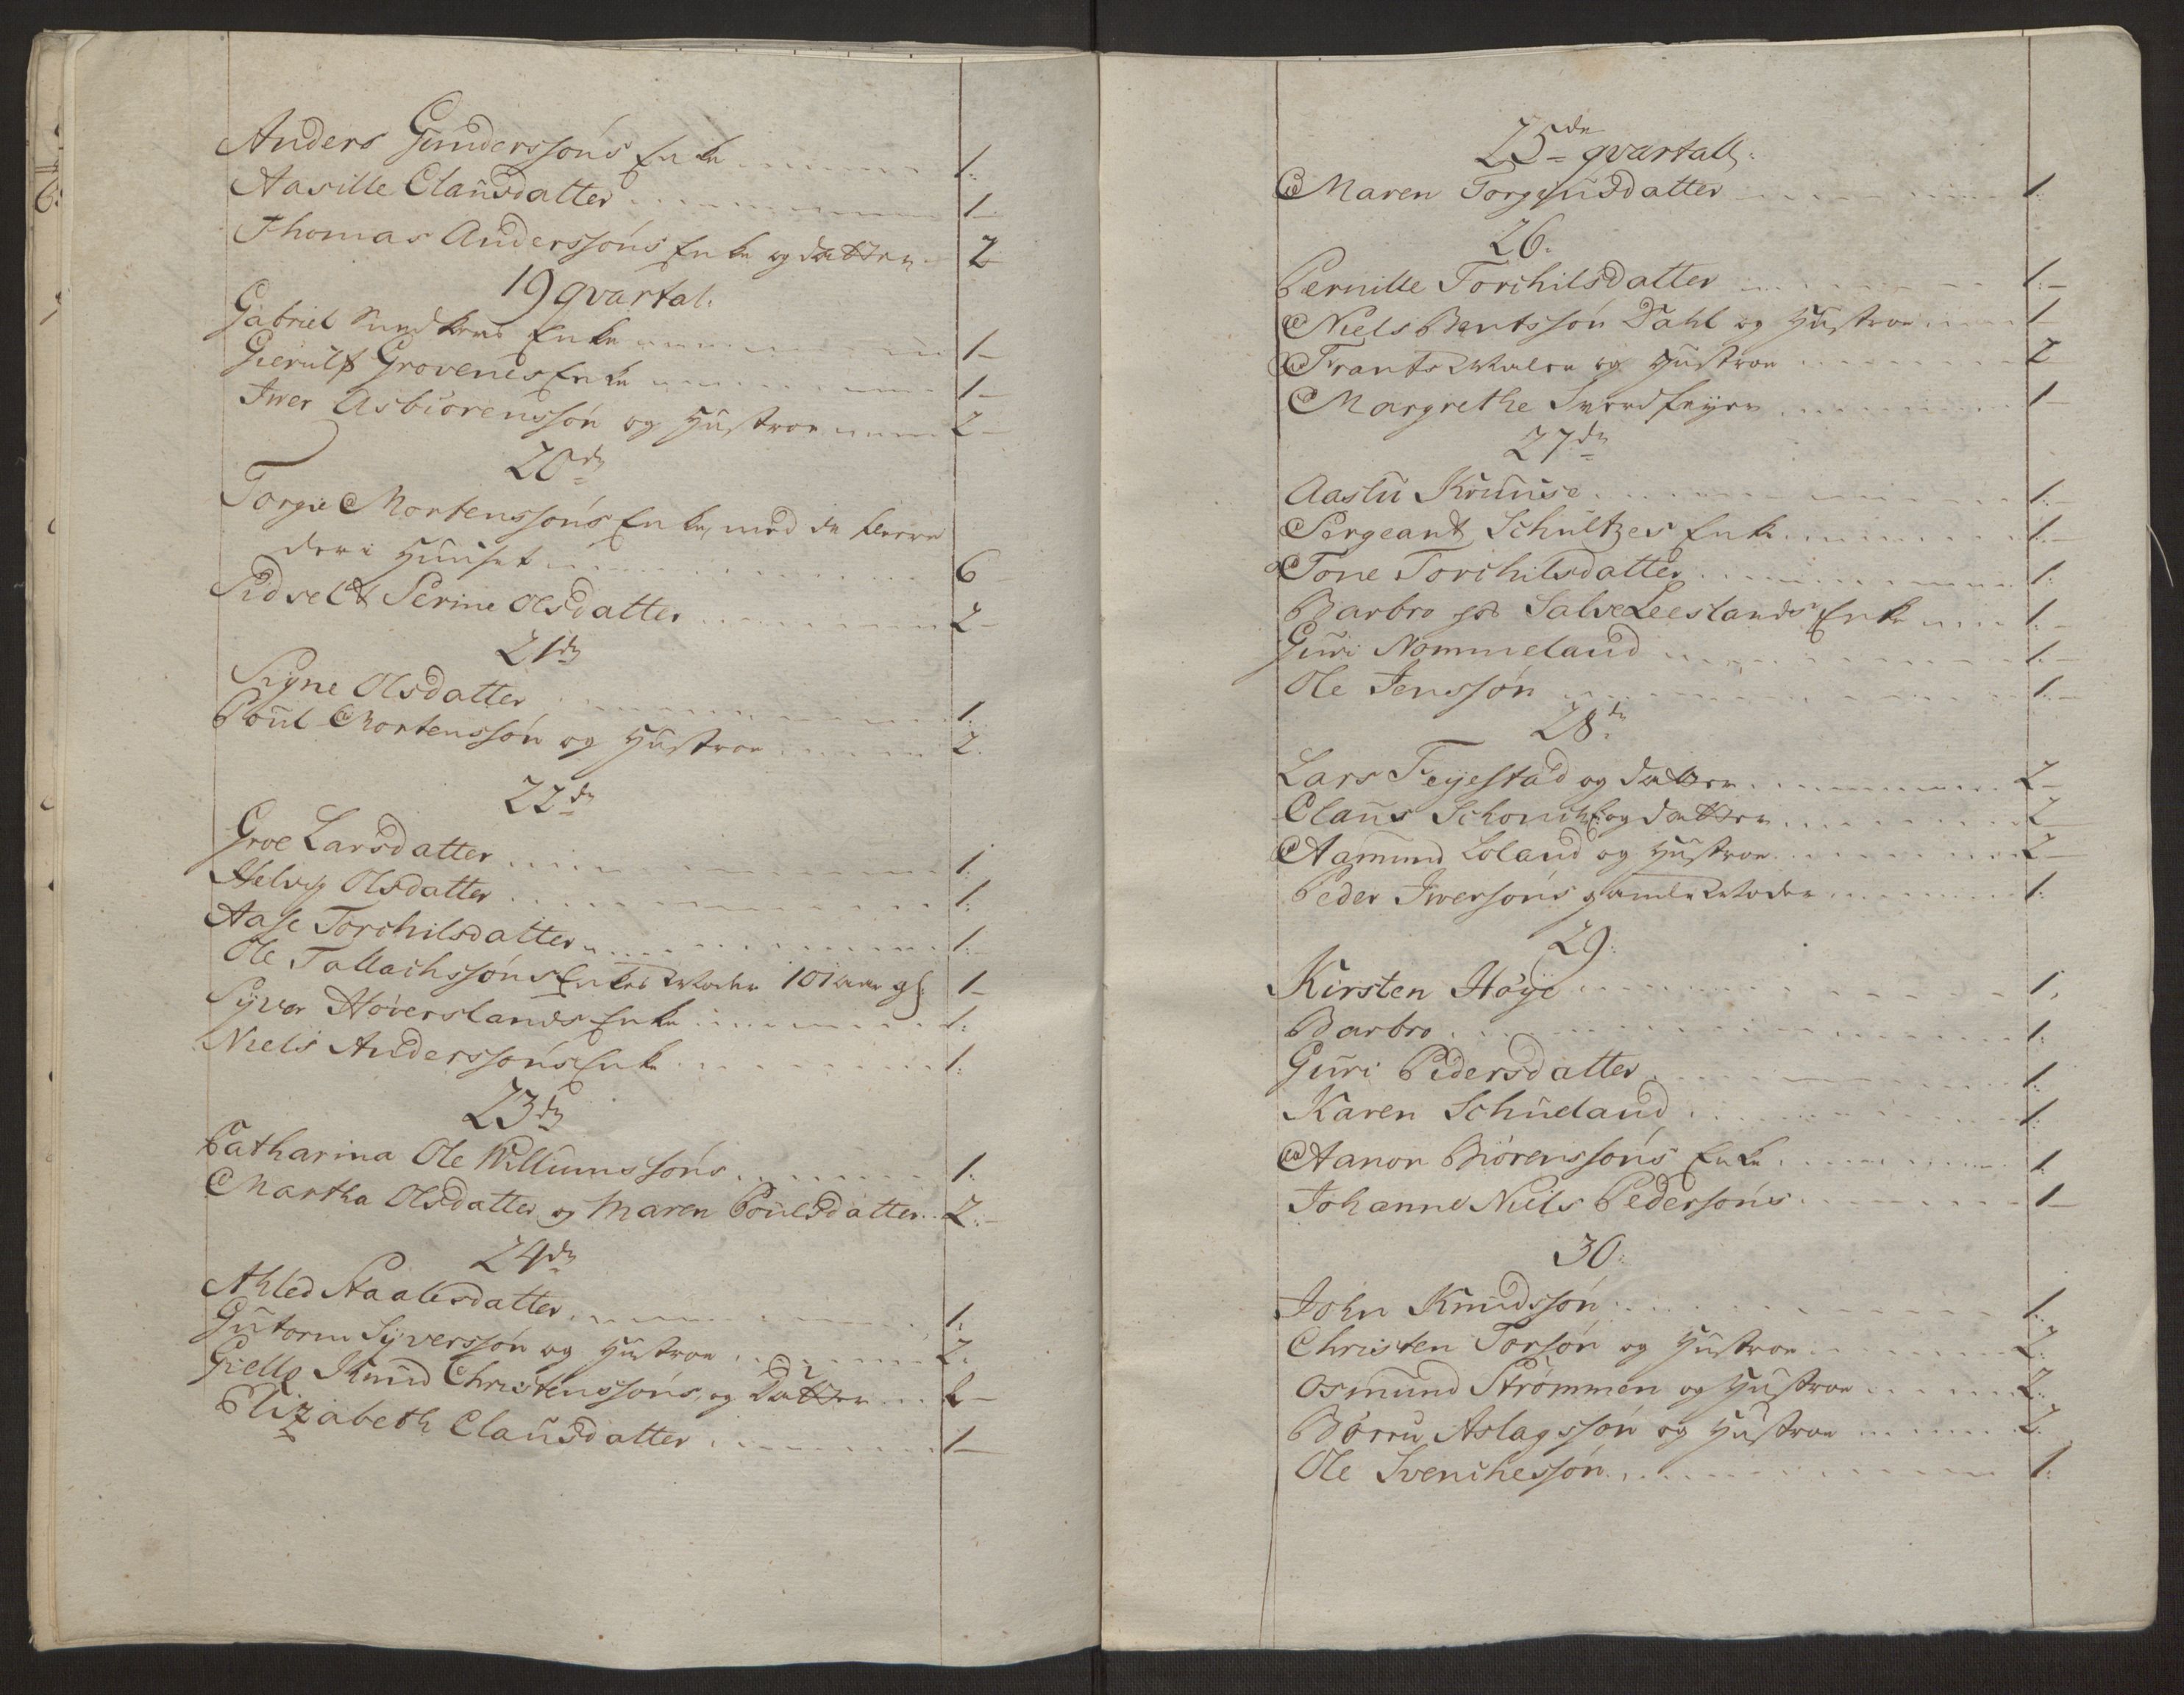 Anders Gunderssøns Enke 1.
Aasille Clausdatter 1
Thomas Anderssøns Enke og datter 2
19 qvartal.
Gabriel Enke 1
Gierulf Grovenes Enke 1
Iwer Asbiörenssøn og Hustroe 2
20de
Torgie Mortenssøns Enke, med de flere
der i Huuset 6
Sidsel & Serine Olsdatter 2
21de
Signe Olsdatter 1.
Poul Mortenssøn og Hustroe 2.
22de
Groe Larsdatter 1.
Helvig Olsdatter 1.
Aase Torchilsdatter 1.
Ole Tallachssøns Enkes Moder 101 aar gl: 1
Syver Höverslands Enke 1.
Niels Anderssøns Enke 1.
23de
Catharina Ole Willumssøns 1.
Martha Olsdatter og Maren Poulsdatter 2.
24de
Ahled Staalesdatter 1.
Gutorm Syverssøn og Hustroe 2.
Giello Knud Christenssøns, og Datter 2
Elizabeth Clausdatter 1
25de qvartall:
Maren Torgiusdatter 1.
26.
Pernille Torchilsdatter 1.
Niels Bentssøn Dahl og Hustroe 1
Frants og Hustroe 2
Margrethe Sverdfeyer 1
27de
Aaslu Krunise 1.
Sergeant Schultzes Enke 1.
Tone Torchilsdatter 1.
Barbro Salve Leeslands Enke 1.
Guri Nommeland 1.
Ole Jenssøn 1.
28de
Lars Feyestad og datter 2
Claus og datter 2
Aamund Loland og Hustroe 2
Peder Iwersøns gamle Moder 1.
29.
Kirsten Höye 1.
Barbro 1.
Guri Pedersdatter 1.
Karen Schueland 1.
Aanon Biörenssøns Enke 1
Johanne Niels Pedersøns 1
30.
John Knudssøn 1.
Christen Torsøn og Hustroe 2.
Osmund Strømmen og Hustroe 2.
Börru Aslagssøn og Hustroe 2.
Ole Svenchessøn 1.